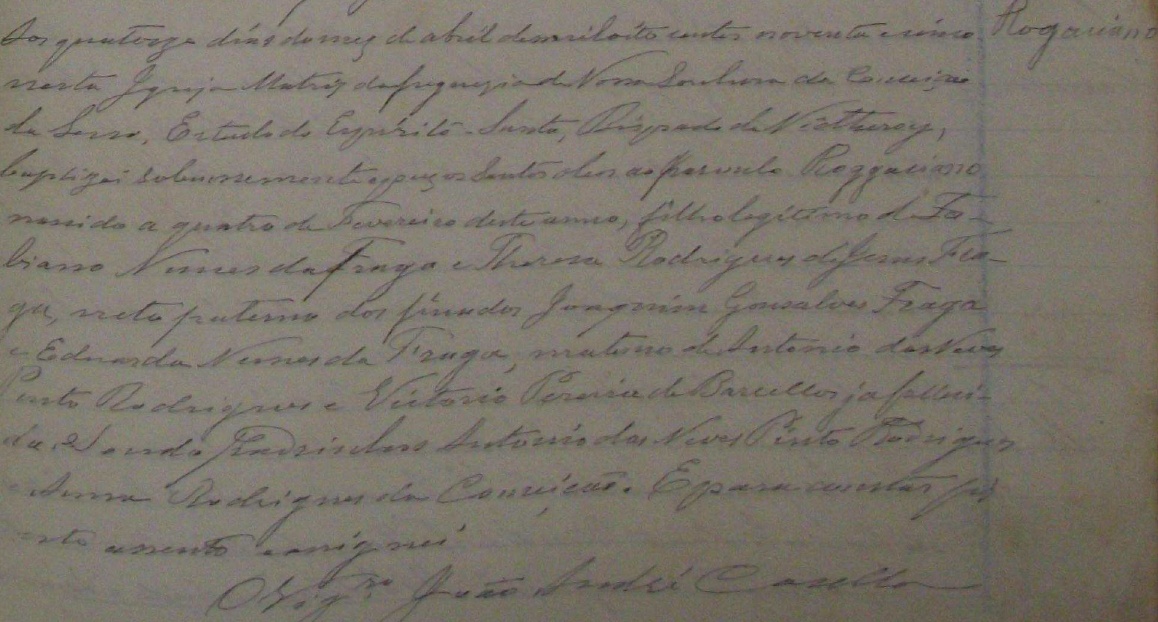 Aos quatorze dias do mez de abril de mil oito centos noventa e cinco
Rogaciano
nesta Igreja Matriz da freguezia de Nossa Senhora da Conceição
da Serra, Estado do Espirito-Santo, Bispado de Nictheroy,
baptizei solemnemente e puz os Santos oleos ao parvulo Roggaciano
nascido a quatro de Fevereiro deste anno, filho legitimo de Fa-
biano Nunes da Fraga e Theresa Rodrigues de Jesus Fra-
ga, neto paterno dos finados Joaquim Gonsalves Fraga
e Eduarda Nunes da Fraga, materno de Antonio das Neves
Pinto Rodrigues e Victoria Pereira de Barcellos ja falleci-
da. Sendo Padrinhos Antonio das Neves Pinto Rodrigues
e Anna Rodrigues da Conceição. E para constar fiz
este assento e assignei
O Vigr.º João André Casella